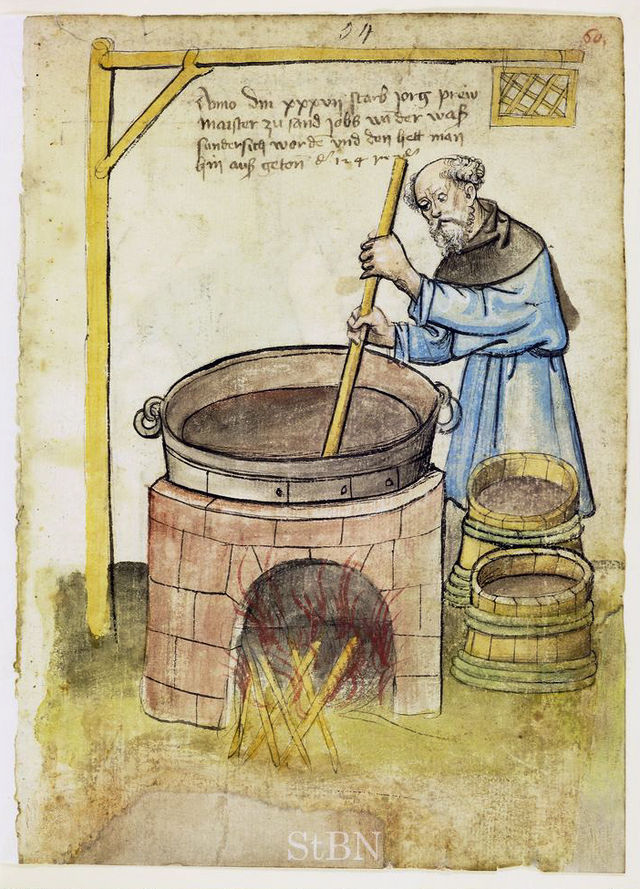 60.
Anno dm xxxvii starb jorg prew
maister zu sand jobs wa der waß
sundersich worde vnd den hett man
hin auß geton
StBN